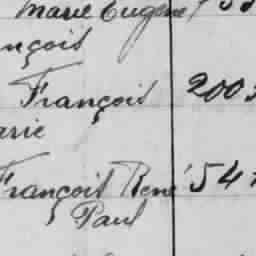 Marie Eugène
nçois
François 200
arie
François René 54
Paul